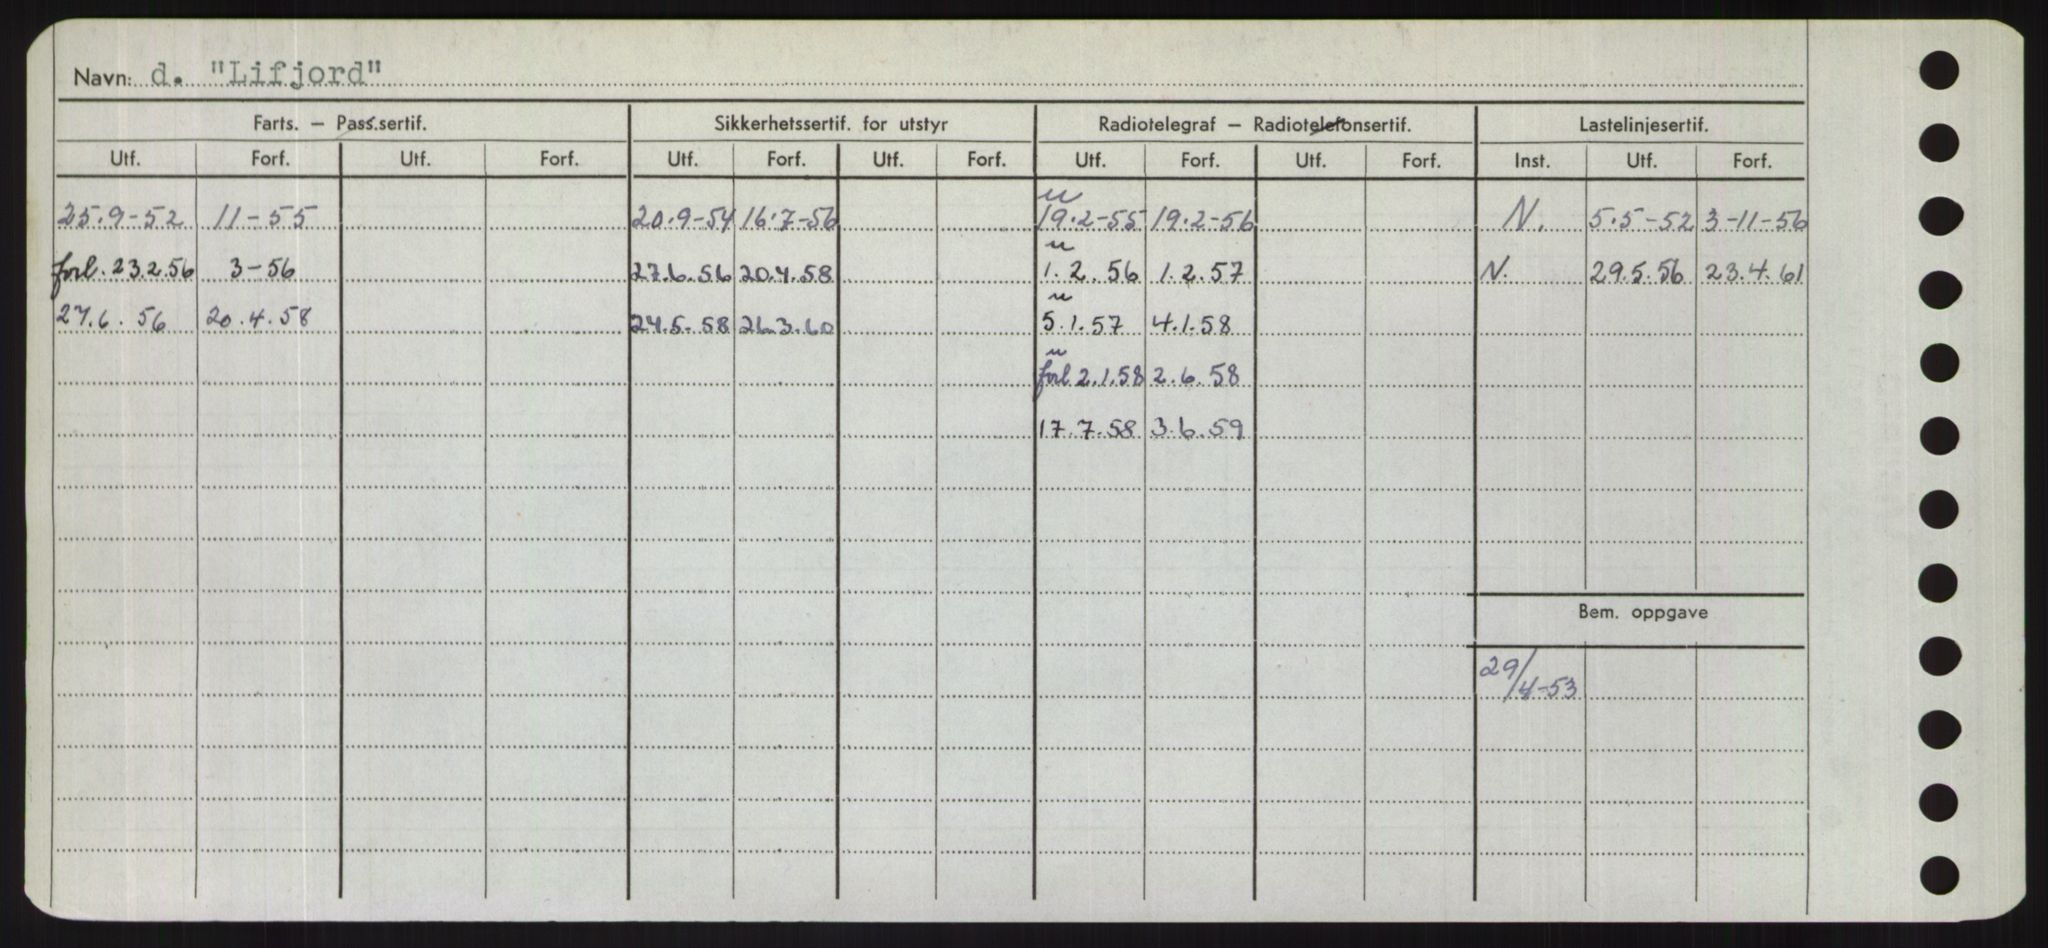 Navn: d. "Lifjord"
Farts. – Pass.sertif. Sikkerhetssertif. for utstyr Radiotelegraf – Radiotelefonsertif. Lastelinjesertif.
Utf. Forf. Utf. Forf. Utf. Forf. Utf. Forf. Utf. Forf. Utf. Forf. Inst. Utf. Forf.
u
25.9-52 11-55 20.9-54 16.7-56 19.2-55 19.2-56 N. 5.5-52 3-11-56
u
forl. 23.2.56 3-56 27.6.56 20.4.58 1.2.56 1.2.57 N. 29.5.56 23.4.61
u
27.6.56 20.4.58 24.5.58 26.3.60 5.1.57 4.1.58
u
forl 2.1.58 2.6.58
17.7.58 3.6.59
Bem. oppgave
29/4-53